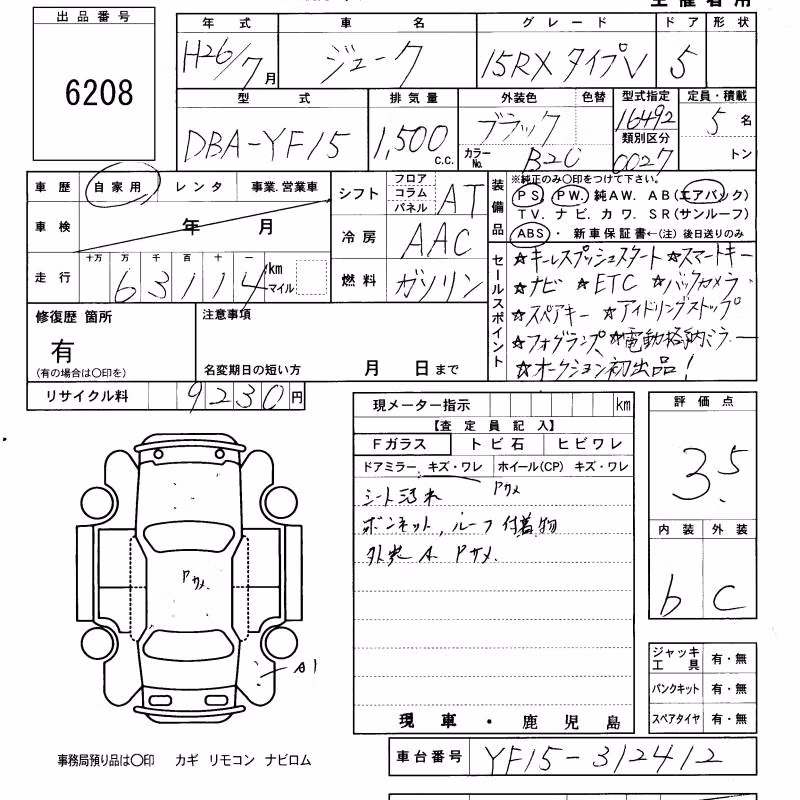 出品番号
6208
年式 車名 グレード ドア 形状
H26/7月 ジューク 15RX タイプV 5
型式 排気量 外装色 色替 型式指定 定員・積載
DBA-YF15 1,500 C.C. ブラック 16492 5名
カラーNo. B20 類別区分 0027 トン
車歴 自家用 レンタ 事業.営業車
車検 年 月
走行 十万 万 千 百 十 一
63114 km マイル
シフト フロア コラム パネル AT
冷房 AAC
燃料 ガソリン
装備品
※純正のみ〇印をつけて下さい。
PS. PW. 純AW. AB(エアバック)
TV. ナビ. カワ. SR(サンルーフ)
ABS・ 新車保証書←(注) 後日送りのみ
セールスポイント
☆キーレスプッシュスタート ☆スマートキー
☆ナビ ☆ETC ☆バックカメラ
☆スペアキー ☆アイドリングストップ
☆フォグランプ ☆電動格納ミラー
☆オークション初出品!
修復歴 箇所
有
(有の場合は〇印を)
注意事項
名変期日の短い方 月 日まで
リサイクル料 9230円
現メーター指示 km
【査定員記入】
Fガラス トビ石 ヒビワレ
ドアミラー キズ・ワレ ホイール(CP) キズ・ワレ
アサメ
シート汚れ
ボンネット,ルーフ 付着物
外装 A アサメ.
現車・鹿児島
評価点
3.5
内装 外装
b C
ジャッキ工具 有・無
パンクキット 有・無
スペアタイヤ 有・無
アサメ.
A1
事務局預り品は〇印 カギ リモコン ナビロム
車台番号 YF15-312412